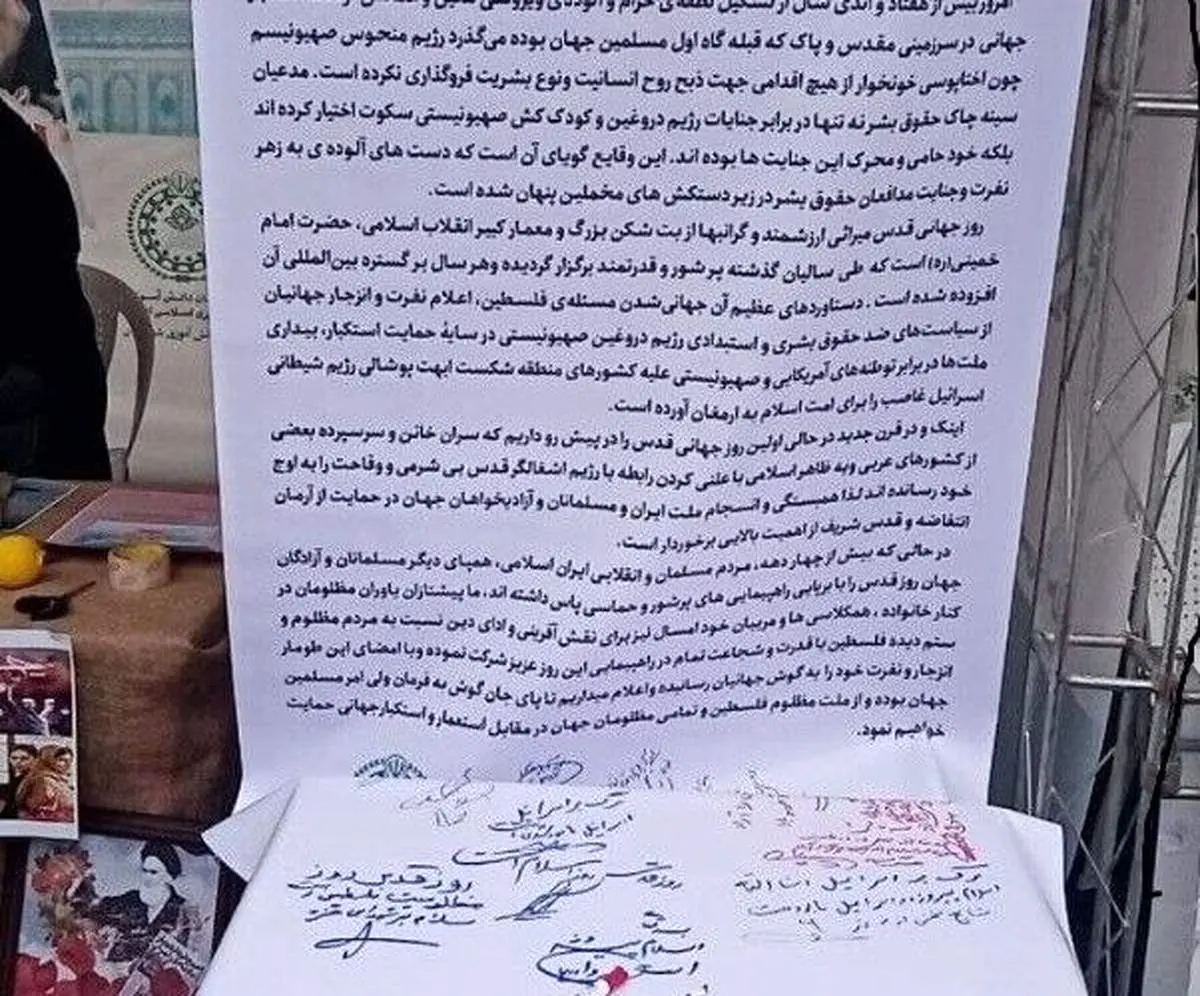 امروز بیش از هفتاد و اندی سال از تشکیل نطفه ی حرام و آلوده‌ی ویروسی
جهانی در سرزمینی مقدس و پاک که قبله گاه اول مسلمین جهان بوده می‌گذرد رژیم منحوس صهیونیسم
چون اختاپوسی خونخوار از هیچ اقدامی جهت ذبح روح انسانیت ونوع بشریت فروگذاری نکرده است. مدعیان
سینه چاک حقوق بشر نه تنها در برابر جنایات رژیم دروغین و کودک کش صهیونیستی سکوت اختیار کرده اند
بلکه خود حامی و محرک این جنایت ها بوده اند. این وقایع گویای آن است که دست های آلوده ی به زهر
نفرت وجنایت مدافعان حقوق بشر در زیر دستکش های مخملین پنهان شده است.
روز جهانی قدس میراثی ارزشمند و گرانبها از بت شکن بزرگ و معمار کبیر انقلاب اسلامی، حضرت امام
خمینی(ره) است که طی سالیان گذشته پر شور و قدرتمند برگزار گردیده وهر سال بر گستره بین‌المللی آن
افزوده شده است. دستاوردهای عظیم آن جهانی‌شدن مسئله‌ی فلسطین، اعلام نفرت و انزجار جهانیان
از سیاست‌های ضد حقوق بشری و استبدادی رژیم دروغین صهیونیستی در سایهٔ حمایت استکبار، بیداری
ملت‌ها در برابر توطئه‌های آمریکایی و صهیونیستی علیه کشورهای منطقه شکست ابهت پوشالی رژیم شیطانی
اسرائیل غاصب را برای امت اسلام به ارمغان آورده است.
اینک و در قرن جدید در حالی اولین روز جهانی قدس را در پیش رو داریم که سران خائن و سرسپرده بعضی
از کشورهای عربی وبه ظاهر اسلامی با علنی کردن رابطه با رژیم اشغالگر قدس بی شرمی و وقاحت را به اوج
خود رسانده اند لذا همبستگی و انسجام ملت ایران و مسلمانان و آزادیخواهان جهان در حمایت از آرمان
انتفاضه و قدس شریف از اهمیت بالایی برخوردار است.
در حالی که بیش از چهار دهه، مردم مسلمان و انقلابی ایران اسلامی، همپای دیگر مسلمانان و آزادگان
جهان روز قدس را با برپایی راهپیمایی های پرشور و حماسی پاس داشته اند، ما پیشتازان یاوران مظلومان در
کنار خانواده، همکلاسی ها و مربیان خود امسال نیز برای نقش آفرینی و ادای دین نسبت به مردم مظلوم و
ستم دیده فلسطین با قدرت و شجاعت تمام در راهپیمایی این روز عزیز شرکت نموده وبا امضای این طومار
انزجار و نفرت خود را به گوش جهانیان رسانیده واعلام میداریم تا پای جان گوش به فرمان ولی امر مسلمین
جهان بوده و از ملت مظلوم فلسطین و تمامی مظلومان جهان در مقابل استعمار و استکبار جهانی حمایت
خواهیم نمود.
مرگ بر اسرائیل
روز قدس روز
مرگ بر اسرائیل